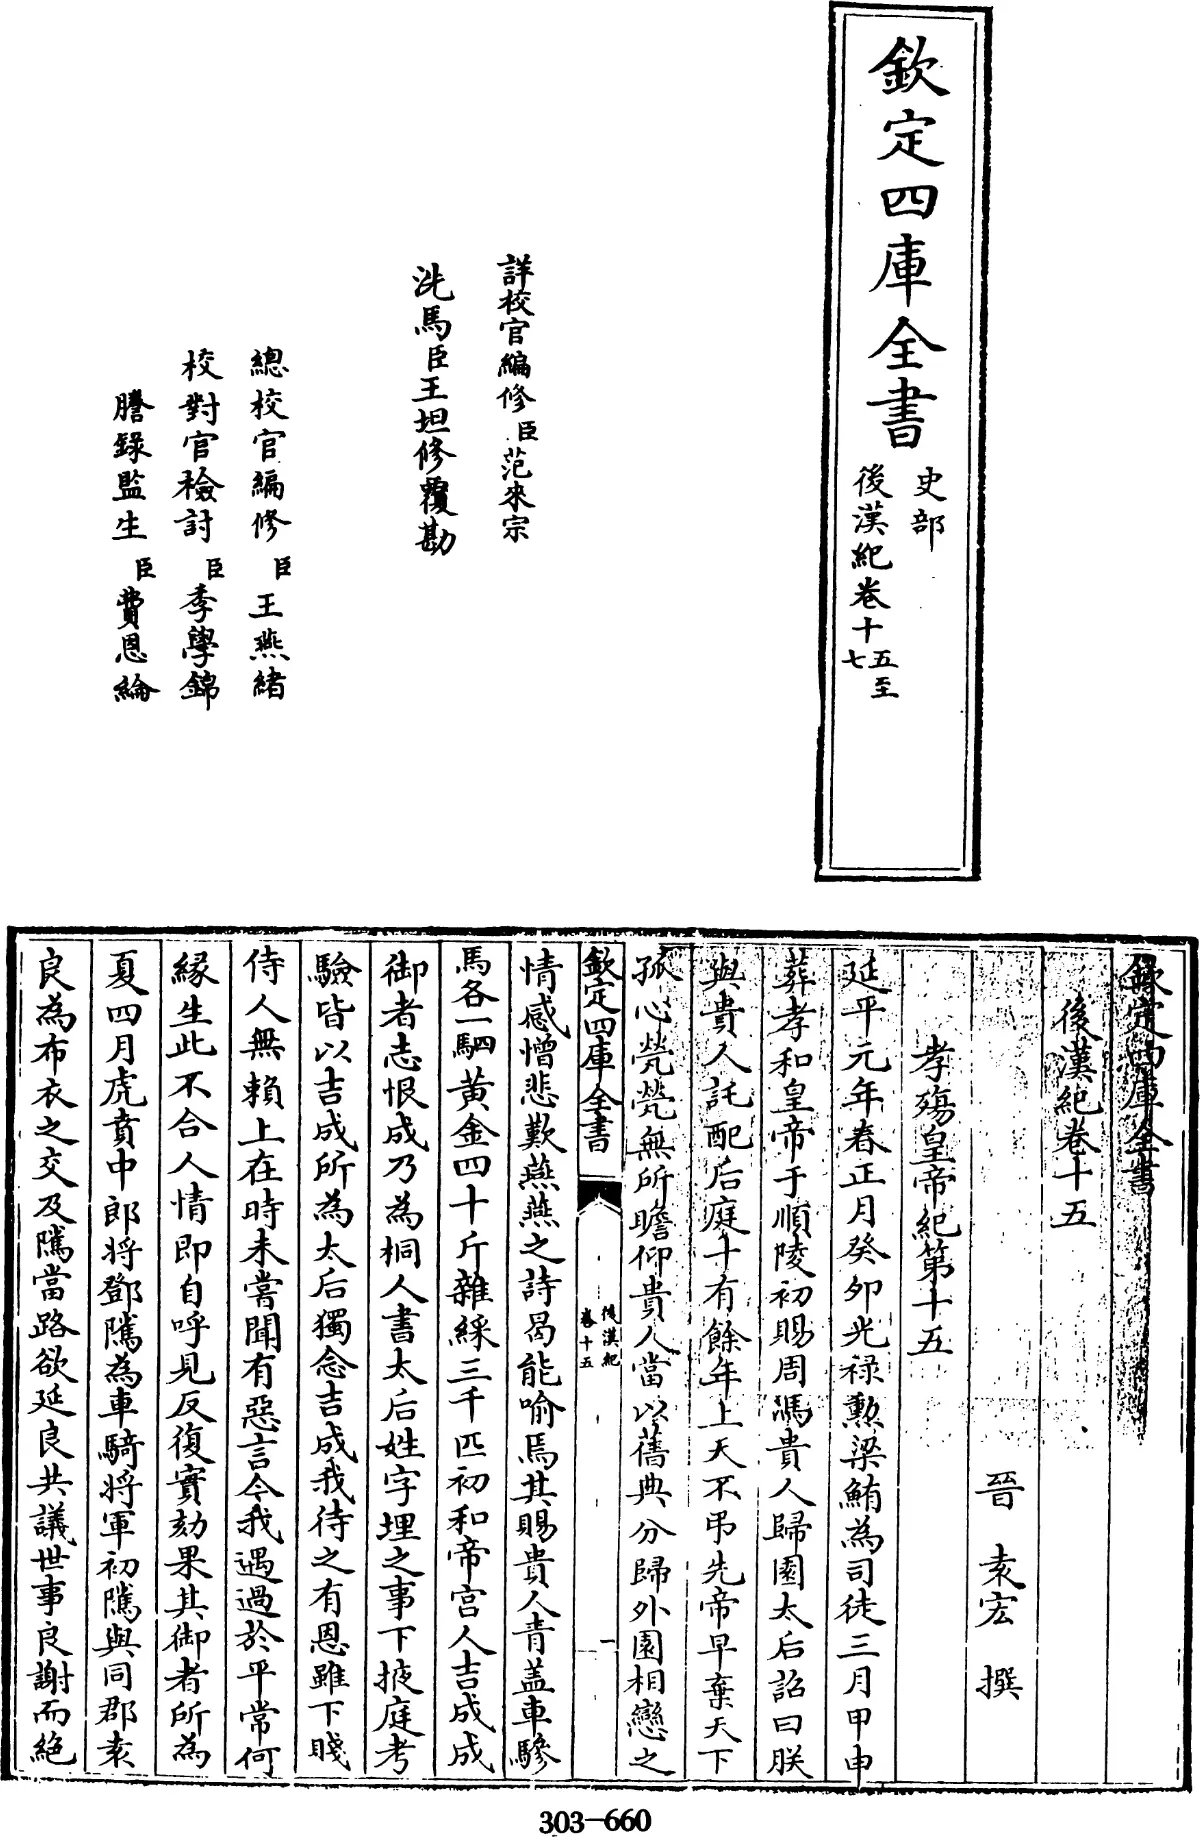 欽定四庫全書
史部
後漢紀卷十五至
七
詳校官編修臣范來宗
洗馬臣王坦修覆勘
總校官編修臣王燕緒
校對官檢討臣季學錦
謄錄監生臣費恩綸
欽定四庫全書
後漢紀卷十五
晉袁宏撰
孝殤皇帝紀第十五
延平元年春正月癸卯光祿勲梁鮪為司徒三月甲申
葬孝和皇帝于順陵初賜周馮貴人歸園太后詔曰朕
與貴人託配后庭十有餘年上天不弔先帝早棄天下
孤心煢煢無所瞻仰貴人當以舊典分歸外園相戀之
欽定四庫全書
後漢紀
卷十五
一
情感憎悲歎燕燕之詩曷能喻焉其賜貴人青盖車驂
馬各一駟黄金四十斤雜綵三千匹初和帝宫人吉成成
御者志恨成乃為桐人書太后姓字埋之事下掖庭考
驗皆以吉成所為太后獨念吉成我待之有恩雖下賤
侍人無賴上在時未嘗聞有惡言今我遇過於平常何
緣生此不合人情即自呼見反復實劾果其御者所為
夏四月虎賁中郎將鄧隲為車騎將軍初隲與同郡袁
良為布衣之交及隲當路欲延良共議世事良謝而絶
303-660